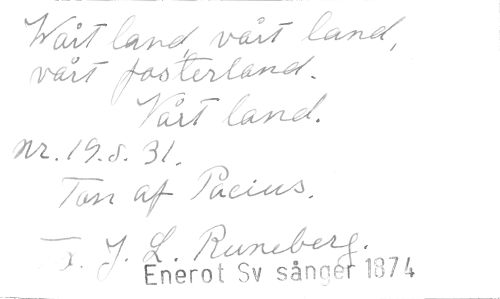 Wårt land, vårt land,
vårt fosterland.
Vårt land.
nr. 19. s. 31.
Ton af Pacius.
Tx. J. L. Runeberg.
Enerot Sv sånger 1874